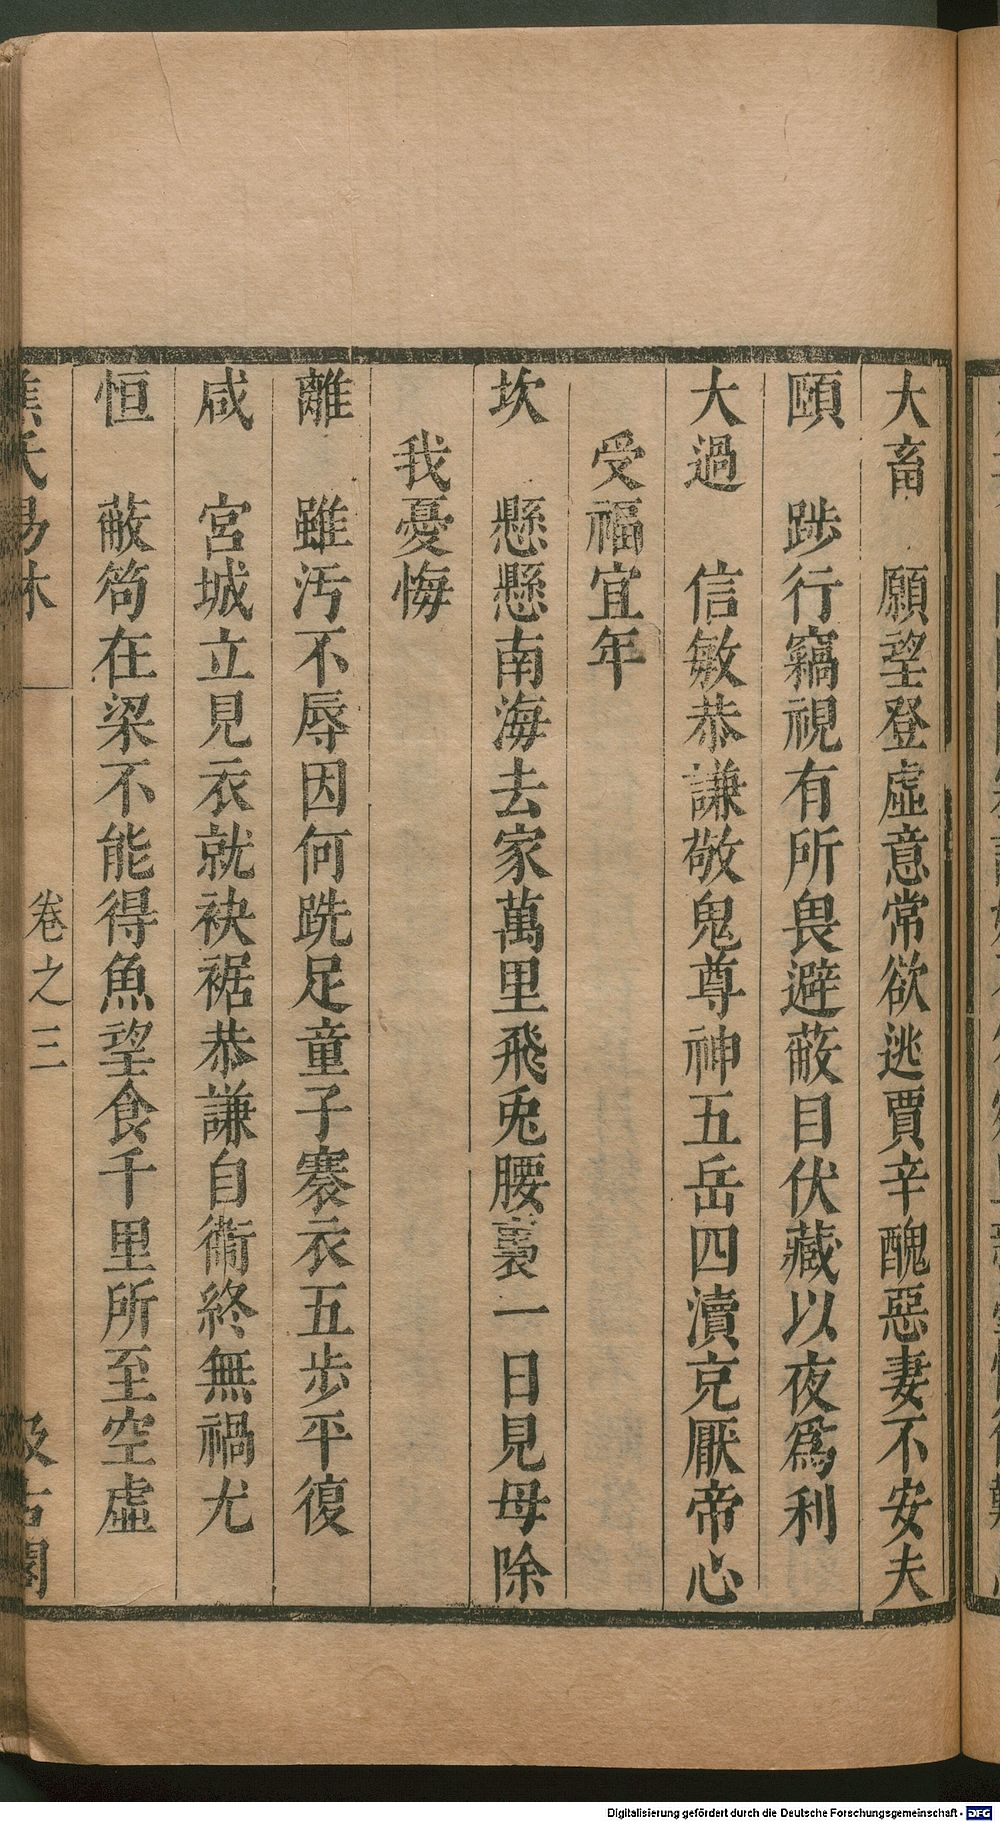 大畜　願望登虛意常欲逃賈辛醜惡妻不安夫
頤　踄行竊視有所畏避蔽目伏藏以夜爲利
大過　信敏恭謙敬鬼尊神五岳四瀆克厭帝心
受福宜年
坎　懸懸南海去家萬里飛兎腰裊一日見母除
我憂悔
離　雖汚不辱因何跣足童子褰衣五步平復
咸　宮城立見衣就袂裾恭謙自衛終無禍尤
恒　蔽笱在梁不能得魚望食千里所至空虛
焦氏易林　卷之三　汲古閣
Digitalisierung gefördert durch die Deutsche Forschungsgemeinschaft - DFG